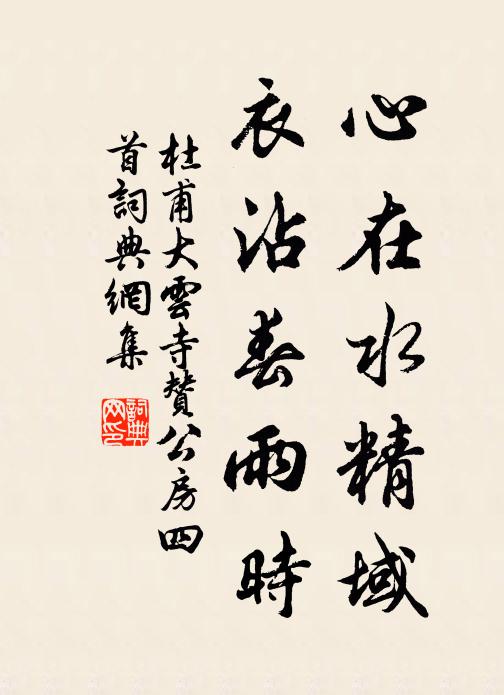 心在水精域
衣沾春雨時
杜甫大雲寺贊公房四
首詞典網集
詞典
网印